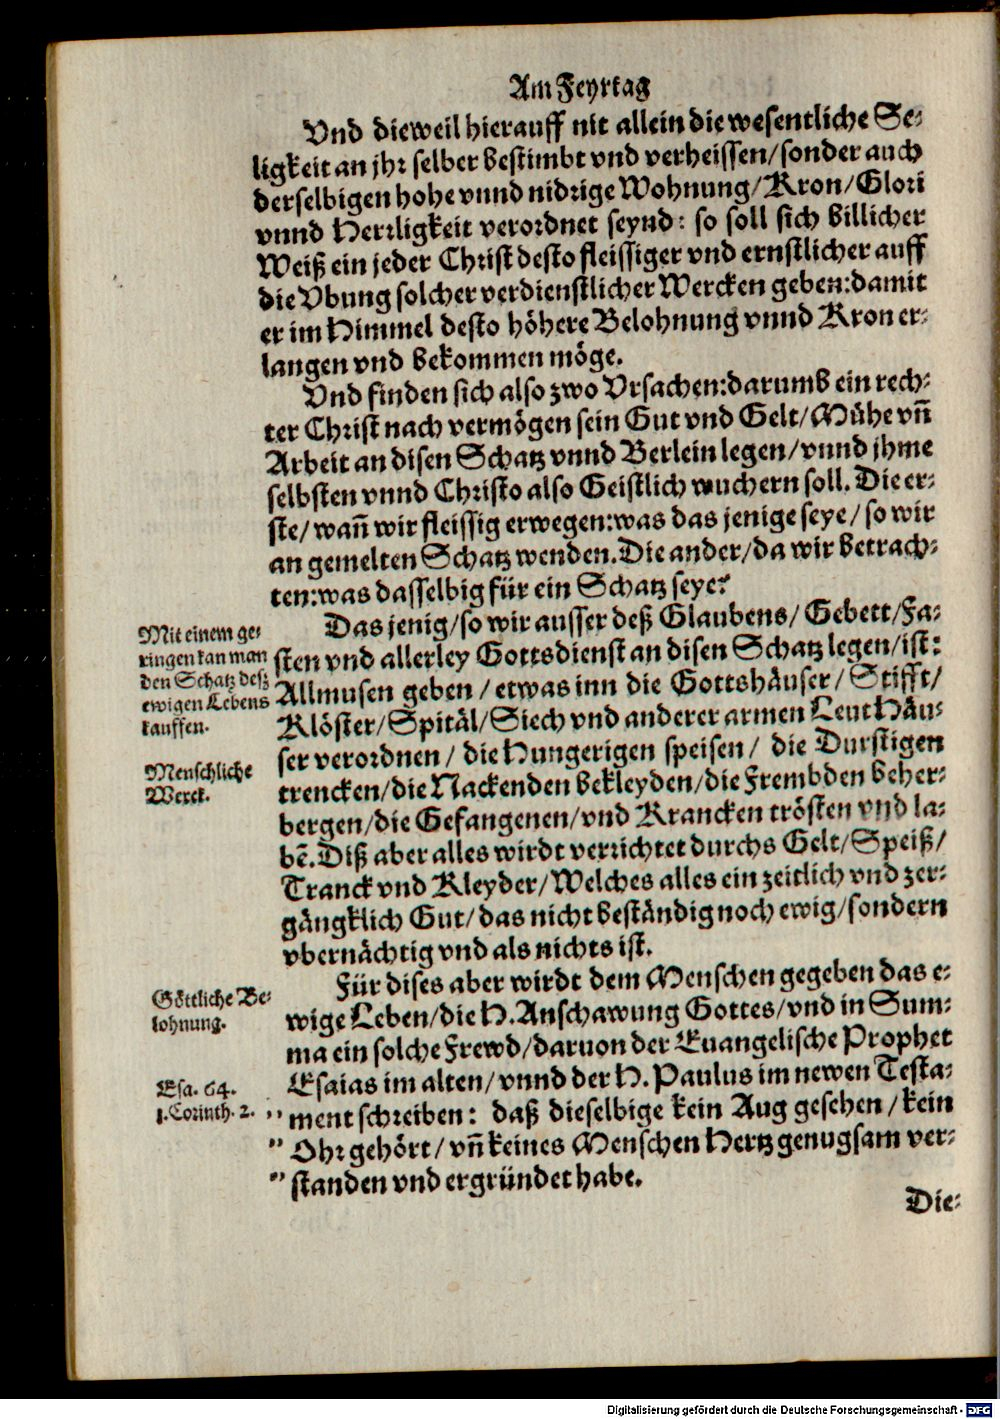 Am Feyrtag
Vnd dieweil hierauff nit allein die wesentliche Se-
ligkeit an jhr selber bestimbt vnd verheissen/ sonder auch
derselbigen hohe vnnd nidrige Wohnung/ Kron/ Glori
vnnd Herrligkeit verordnet seynd: so soll sich billicher
Weiß ein jeder Christ desto fleissiger vnd ernstlicher auff
die Vbung solcher verdienstlicher Wercken geben: damit
er im Himmel desto höhere Belohnung vnnd Kron er-
langen vnd bekommen möge.
Vnd finden sich also zwo Vrsachen: darumb ein rech-
ter Christ nach vermögen sein Gut vnd Gelt/ Mühe vñ
Arbeit an disen Schatz vnnd Berlein legen/ vnnd jhme
selbsten vnnd Christo also Geistlich wuchern soll. Die er-
ste/ wañ wir fleissig erwegen: was das jenige seye/ so wir
an gemelten Schatz wenden. Die ander/ da wir betrach-
ten: was dasselbig für ein Schatz seye?
Das jenig/ so wir ausser deß Glaubens/ Gebett/ Fa-
sten vnd allerley Gottsdienst an disen Schatz legen/ ist:
Allmusen geben / etwas inn die Gottshäuser/ Stifft/
Klöster/ Spitäl/ Siech vnd anderer armen Leut Häu-
ser verordnen/ die Hungerigen speisen/ die Durstigen
trencken/ die Nackenden bekleyden/ die Frembden beher-
bergen/ die Gefangenen/ vnd Krancken trösten vnd la-
bē. Diß aber alles wirdt verrichtet durchs Gelt/ Speiß/
Tranck vnd Kleyder/ Welches alles ein zeitlich vnd zer-
gängklich Gut/ das nicht beständig noch ewig/ sondern
vbernächtig vnd als nichts ist.
Für dises aber wirdt dem Menschen gegeben das e-
wige Leben/ die H. Anschawung Gottes/ vnd in Sum-
ma ein solche Frewd/ daruon der Euangelische Prophet
Esaias im alten/ vnnd der H. Paulus im newen Testa-
" ment schreiben: daß dieselbige kein Aug gesehen / kein
" Ohr gehört/ vñ keines Menschen Hertz genugsam ver-
" standen vnd ergründet habe.
Die-
Mit einem ge-
ringen kan man
den Schatz deß
ewigen Lebens
kauffen.
Menschliche
Werck.
Göttliche Be-
lohnung.
Esa. 64.
1. Corinth. 2.
Digitalisierung gefördert durch die Deutsche Forschungsgemeinschaft - DFG